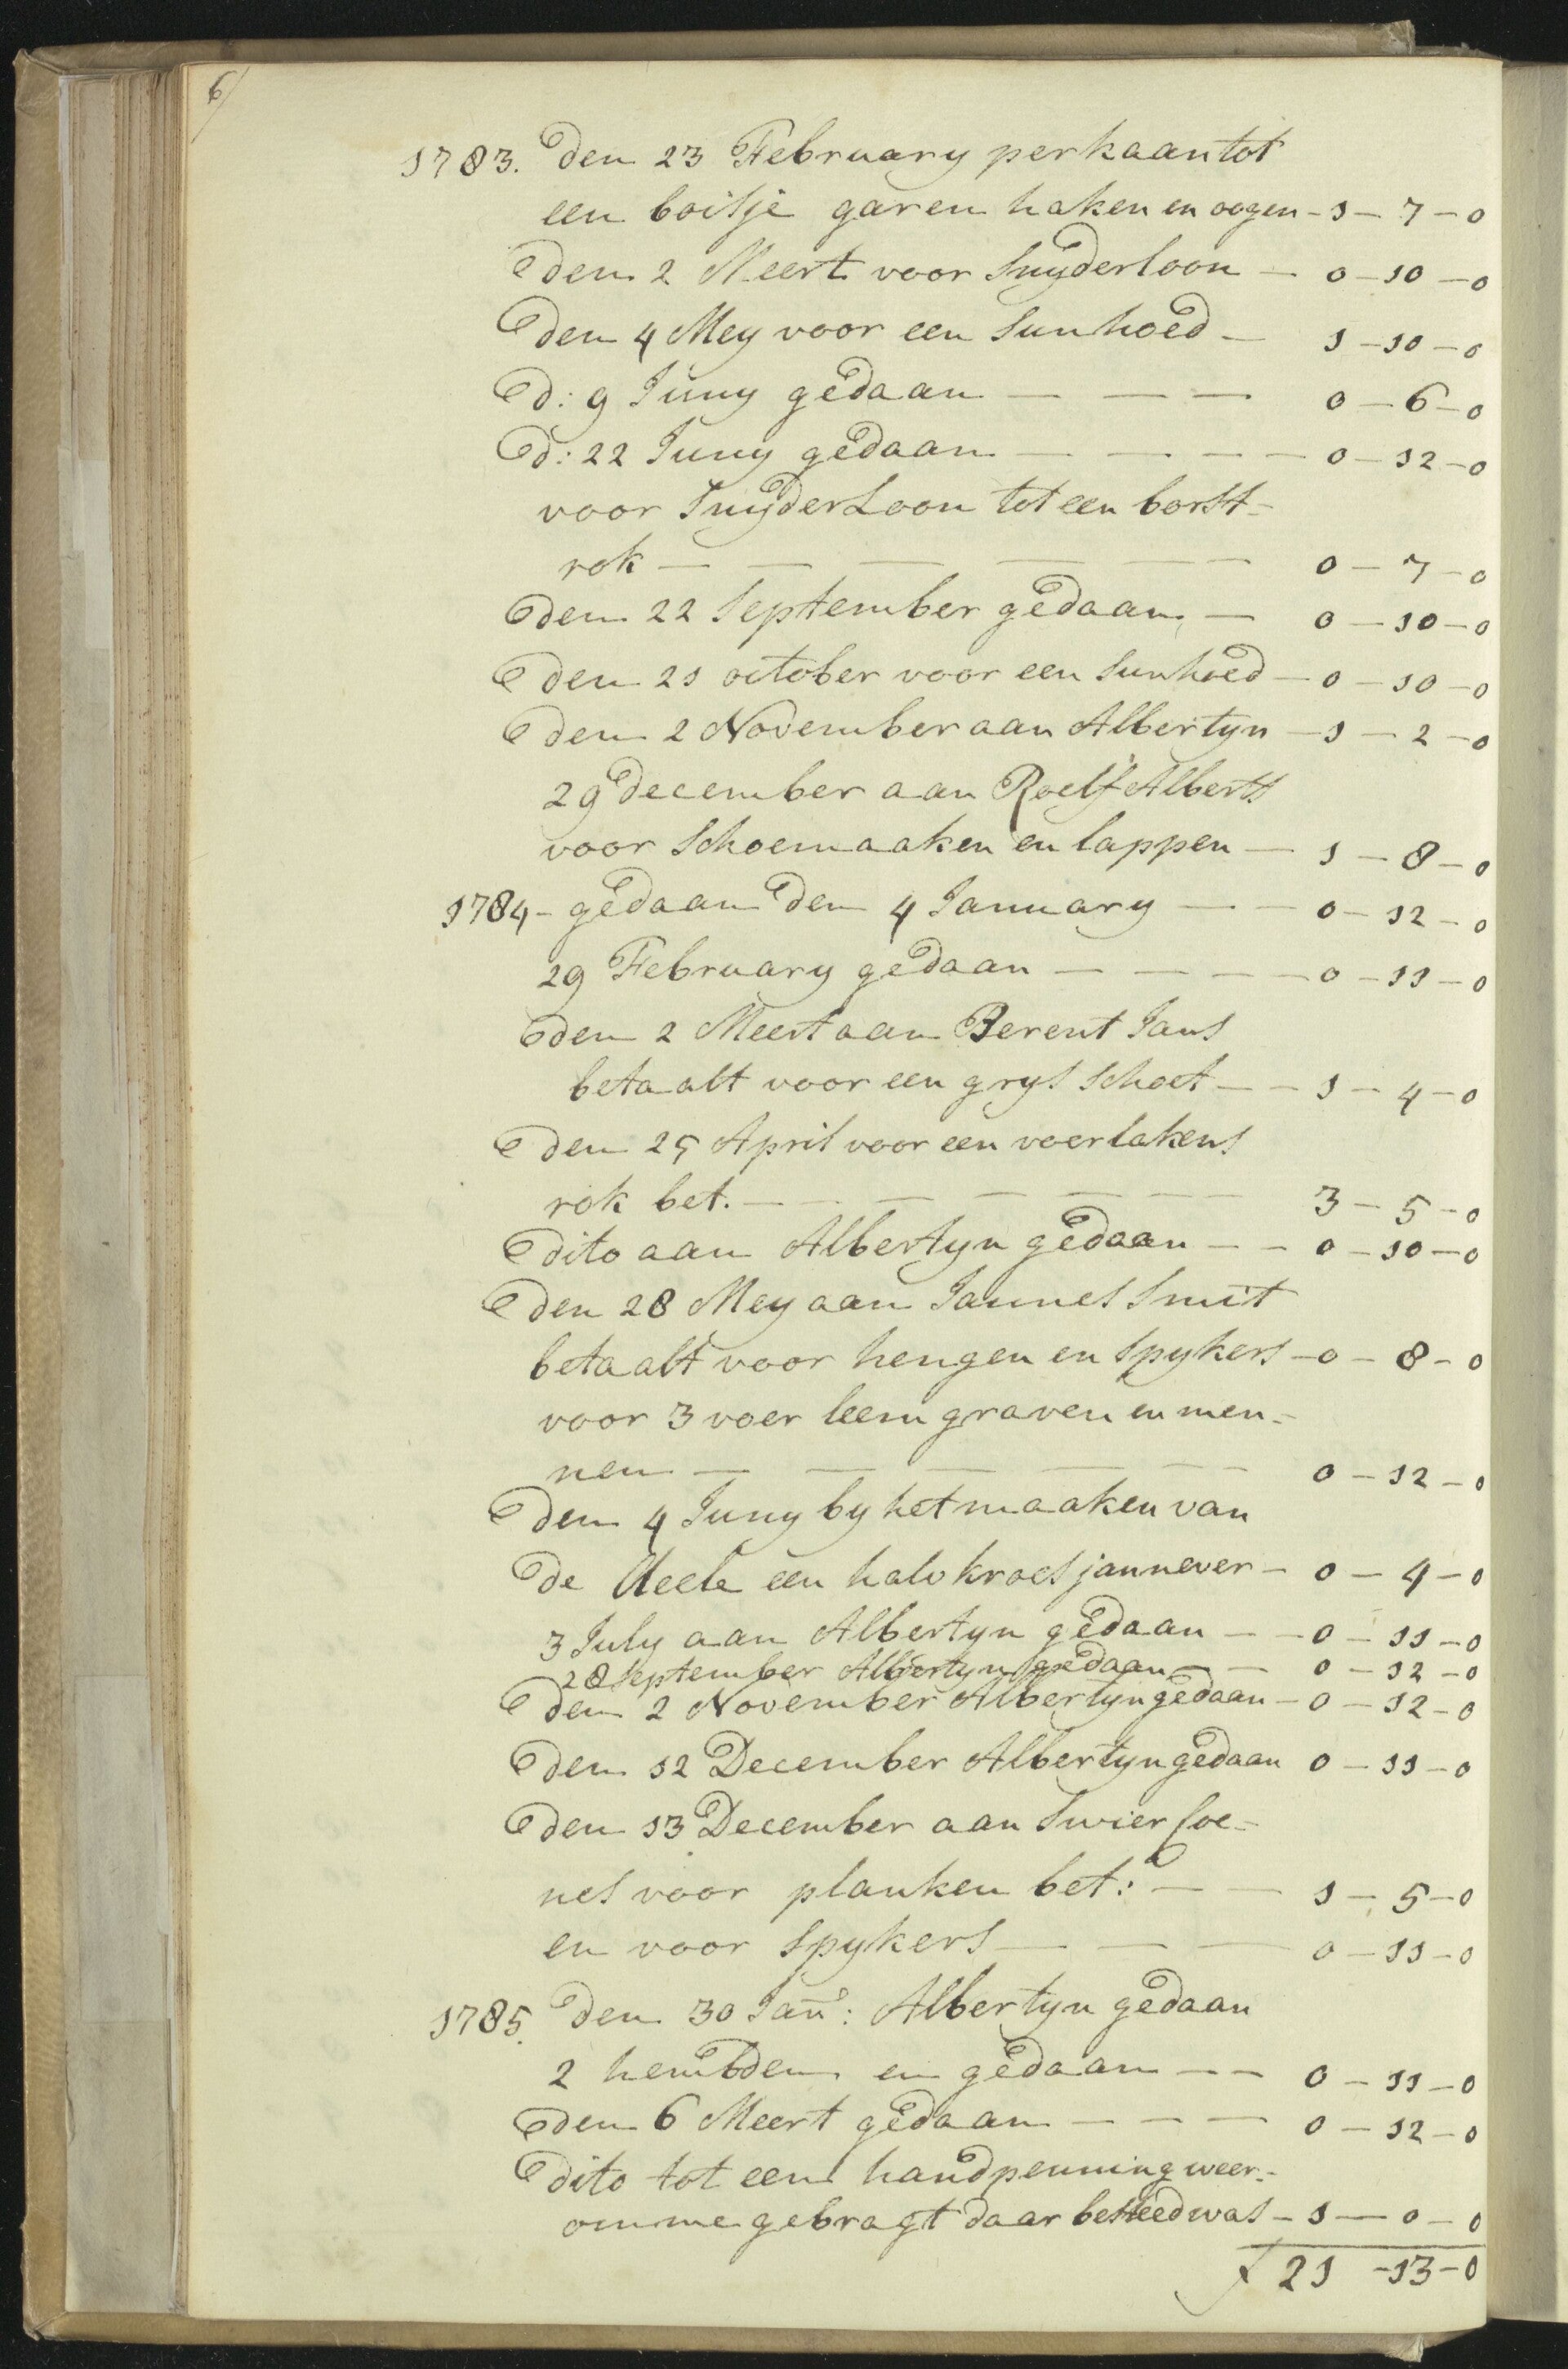 6
1783. den 23 February perkaan tot
een boitje garen haken en oogen - 1 - 7 - 0
den 2 Meert voor Snyderloon - 0 - 10 - 0
den 4 Mey voor een Sunhoed - 1 - 10 - 0
d: 9 Juny gedaan - - - 0 - 6 - 0
d: 22 Juny gedaan - - - - 0 - 12 - 0
voor SnyderLoon tot een borst-
rok - - - - - - 0 - 7 - 0
den 22 September gedaan - 0 - 10 - 0
den 21 october voor een Sunhoed - 0 - 10 - 0
den 2 November aan Albertyn - 1 - 2 - 0
29 december aan Roelf Alberts
voor Schoemaaken en lappen - 1 - 8 - 0
1784 - gedaan den 4 January - - 0 - 12 - 0
29 February gedaan - - - - 0 - 11 - 0
den 2 Meert aan Berent Jans
betaalt voor een grys Schoet - - 1 - 4 - 0
den 25 April voor een voerlakens
rok bet. - - - - - - - 3 - 5 - 0
dito aan Albertyn gedaan - - 0 - 10 - 0
den 28 Mey aan Jannes Smit
betaalt voor hengen en Spykers - 0 - 8 - 0
voor 3 voer leem graven en men-
nen - - - - - - 0 - 12 - 0
den 4 Juny by het maaken van
de deele een halv kroes jannever - 0 - 4 - 0
3 July aan Albertyn gedaan - - 0 - 11 - 0
28 September Albertyn gedaan - - 0 - 12 - 0
den 2 November Albertyn gedaan - 0 - 12 - 0
den 12 December Albertyn gedaan 0 - 11 - 0
den 13 December aan Swier Coe-
nes voor planken bet: - - 1 - 5 - 0
en voor Spykers - - - 0 - 11 - 0
1785. den 30 Jan: Albertyn gedaan
2 hembden en gedaan - - 0 - 11 - 0
den 6 Meert gedaan - - - 0 - 12 - 0
dito tot een handpenning weer-
omme gebragt daar besteed was - 1 - 0 - 0
f 21 - 13 - 0